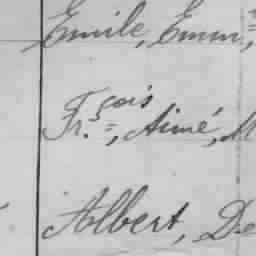 Emile, Emm.
Fr.çois, Aimé, M
Albert, De